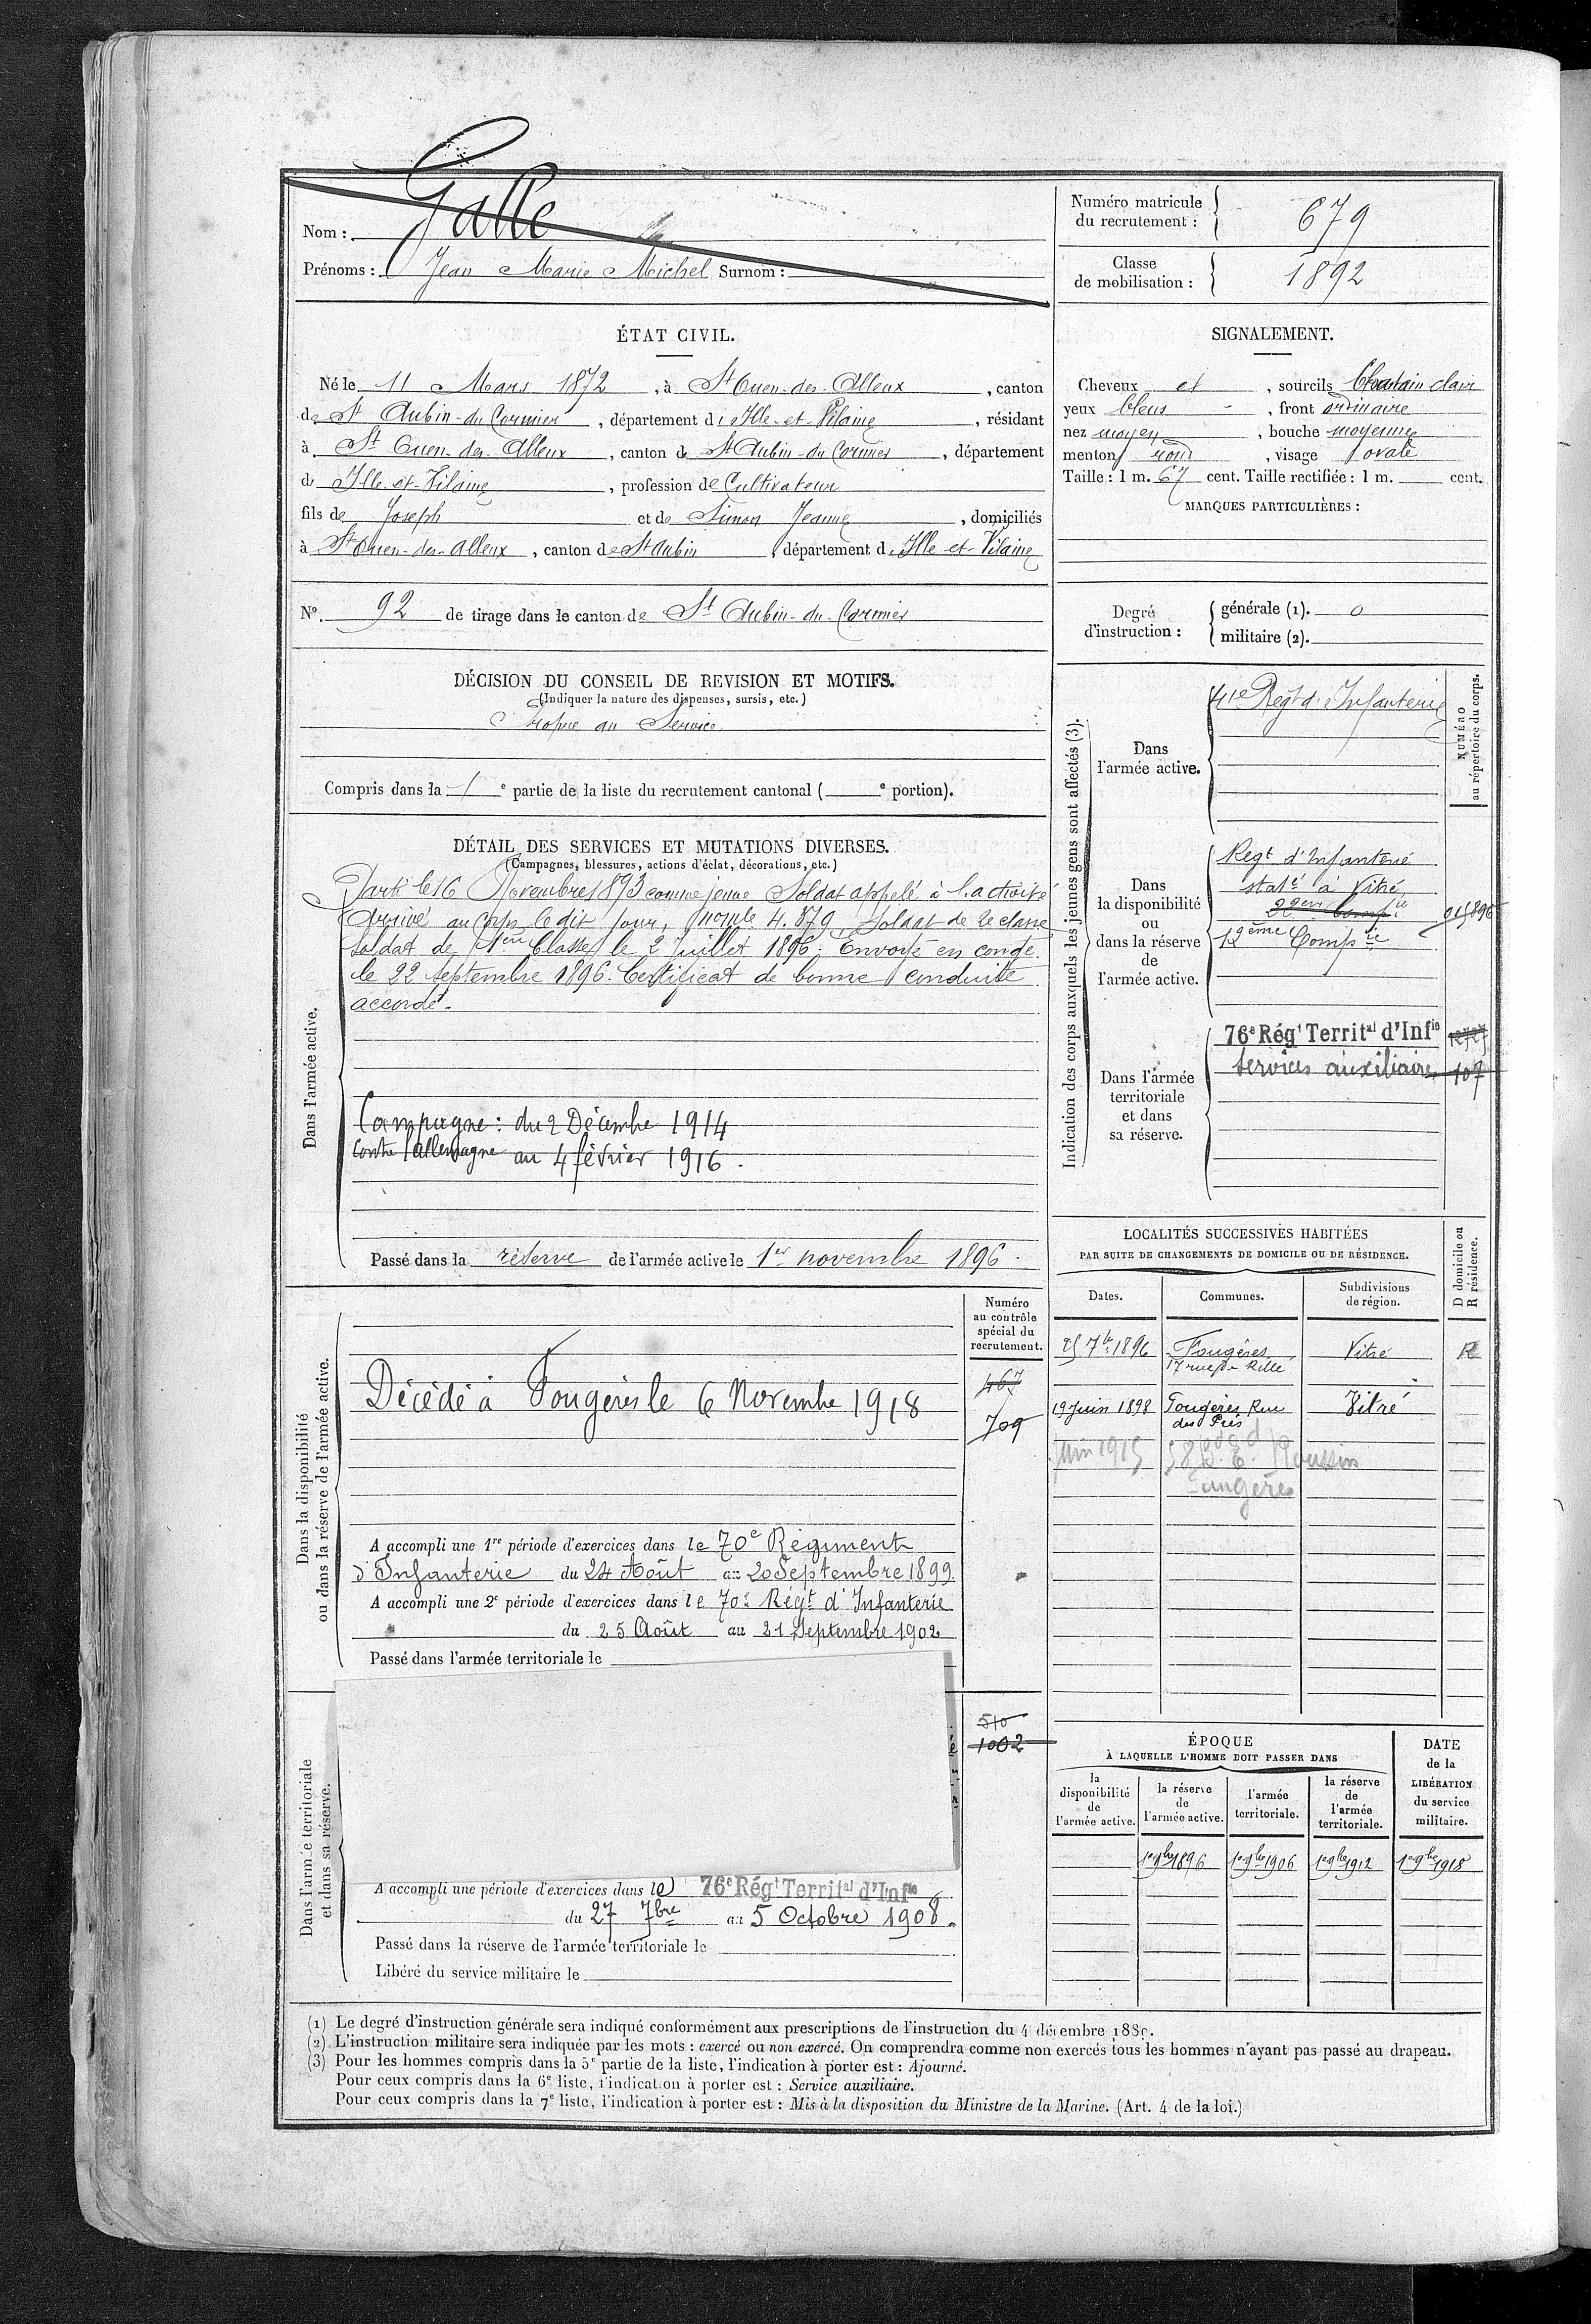 Nom : Galle
Prénoms : Jean Marie Michel Surnom :
Numéro matricule
du recrutement : 679
Classe
de mobilisation : 1892
ÉTAT CIVIL.
Né le 11 Mars 1872, à St Ouen-des-Alleux, canton
de St Aubin-du-Cormier, département d'Ille-et-Vilaine, résidant
à St Ouen-des-Alleux, canton de St Aubin-du-Cormier, département
de Ille-et-Vilaine, profession de Cultivateur
fils de Joseph et de Simon Jeanne, domiciliés
à St Ouen-des-Alleux, canton de St Aubin, département d'Ille-et-Vilaine
No. 92 de tirage dans le canton de St Aubin-du-Cormier
DÉCISION DU CONSEIL DE REVISION ET MOTIFS.
(Indiquer la nature des dispenses, sursis, etc.)
Propre au Service
Compris dans la 1e partie de la liste du recrutement cantonal (e portion).
SIGNALEMENT.
Cheveux et, sourcils Chatain clair
yeux bleus, front ordinaire
nez moyen, bouche moyenne
menton rond, visage ovale
Taille : 1 m. 67 cent. Taille rectifiée : 1 m. cent.
MARQUES PARTICULIÈRES :
Degré
d'instruction :
générale (1). 0
militaire (2).
DÉTAIL DES SERVICES ET MUTATIONS DIVERSES.
(Campagnes, blessures, actions d'éclat, décorations, etc.)
Dans l'armée active.
Parti le 16 Novembre 1893 comme jeune Soldat appelé à l'activité
Arrivé au corps le dit jour, nomle 4.879, Soldat de 2e classe
Soldat de 1ère Classe le 2 Juillet 1896. Envoyé en congé
le 22 septembre 1896. Certificat de bonne conduite
accordé.
Campagne : du 2 Décembre 1914
contre l'allemagne au 4 février 1916.
Passé dans la réserve de l'armée active le 1er novembre 1896.
Indication des corps auxquels les jeunes gens sont affectés (3).
NUMÉRO
au répertoire du corps.
Dans
l'armée active.
41e Regt d'Infanterie
Dans
la disponibilité
ou
dans la réserve
de
l'armée active.
Regt d'Infanterie
staté à Vitré
22eme Compie
12ème Compie
Dans l'armée
territoriale
et dans
sa réserve.
76e Régt Territal d'Infie
Services auxiliaires 107
Dans la disponibilité
ou dans la réserve de l'armée active.
Numéro
au contrôle
spécial du
recrutement.
467
709
Décédé à Fougères le 6 Novembre 1918
A accompli une 1re période d'exercices dans le 70e Régiment
d'Infanterie du 24 Août au 20 Septembre 1899.
A accompli une 2e période d'exercices dans le 70e Régt d'Infanterie
du 25 Août au 21 Septembre 1902
Passé dans l'armée territoriale le
LOCALITÉS SUCCESSIVES HABITÉES
PAR SUITE DE CHANGEMENTS DE DOMICILE OU DE RÉSIDENCE.
Dates. Communes. Subdivisions
de région.
D domicile ou
R résidence.
25 7bre 1896 Fougères Vitré R
17 rue de Rillé
19 Juin 1898 Fougères, Rue Vitré
des Prés
Juin 1915 58 Bd E. Roussin
Fougères
Dans l'armée territoriale
et dans sa réserve.
510
1002
A accompli une période d'exercices dans le 76e Régt Territal d'Infie
du 27 7bre au 5 Octobre 1908.
Passé dans la réserve de l'armée territoriale le
Libéré du service militaire le
ÉPOQUE
À LAQUELLE L'HOMME DOIT PASSER DANS
la
disponibilité
de
l'armée active.
la réserve
de
l'armée active.
l'armée
territoriale.
la réserve
de
l'armée
territoriale.
DATE
de la
LIBÉRATION
du service
militaire.
1er 9bre 1896 1er 9bre 1906 1er 9bre 1912 1er 9bre 1918
(1) Le degré d'instruction générale sera indiqué conformément aux prescriptions de l'instruction du 4 décembre 1889.
(2) L'instruction militaire sera indiquée par les mots : exercé ou non exercé. On comprendra comme non exercés tous les hommes n'ayant pas passé au drapeau.
(3) Pour les hommes compris dans la 5e partie de la liste, l'indication à porter est : Ajourné.
Pour ceux compris dans la 6e liste, l'indication à porter est : Service auxiliaire.
Pour ceux compris dans la 7e liste, l'indication à porter est : Mis à la disposition du Ministre de la Marine. (Art. 4 de la loi.)